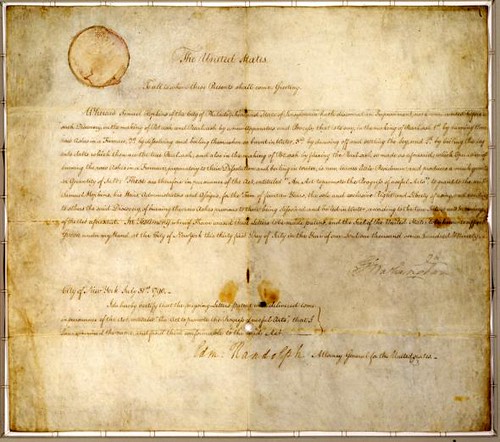 The United States
To all to whom these Presents shall come, Greeting.
Whereas Samuel Hopkins of the City of Philadelphia and State of Pensylvania hath discovered an Improvement, not known or used before
such Discovery, in the making of Pot ash and Pearl ash by a new Apparatus and Process; that is to say, in the making of Pearl ash 1st by burning the
raw Ashes in a Furnace, 2d by dissolving and boiling them when so burnt in Water, 3rd by drawing off and settling the Ley, and 4th by boiling the Ley
into Salts which then are the true Pearl ash; and also in the making of Pot ash by fluxing the Pearl ash so made as aforesaid; which Operation of
burning the raw Ashes in a Furnace, preparatory to their Dissolution and boiling in Water, is new, leaves little Residuum; and produces a much greater
Quantity of Salt: These are therefore in pursuance of the Act, entituled "An Act to promote the Progress of useful Arts", to grant to the said
Samuel Hopkins, his Heirs, Administrators and Assigns, for the Term of fourteen Years, the sole and exclusive Right and Liberty of using, and vending
to others the said Discovery of burning the raw Ashes previous to their being dissolved and boiled in Water, according to the true Intent and meaning
of the Act aforesaid. In Testimony whereof I have caused these Letters to be made patent, and the Seal of the United States to be hereunto affixed
Given under my Hand at the City of New York this thirty first Day of July in the Year of our Lord one thousand seven hundred & Ninety.
G. Washington
City of New York July 31st 1790.—
I do hereby certify that the foregoing Letters patent were delivered to me
in pursuance of the Act, entituled "An Act to promote the Progress of useful Arts"; that I
have examined the same, and find them conformable to the said Act.
Edm: Randolph Attorney General for the United States.